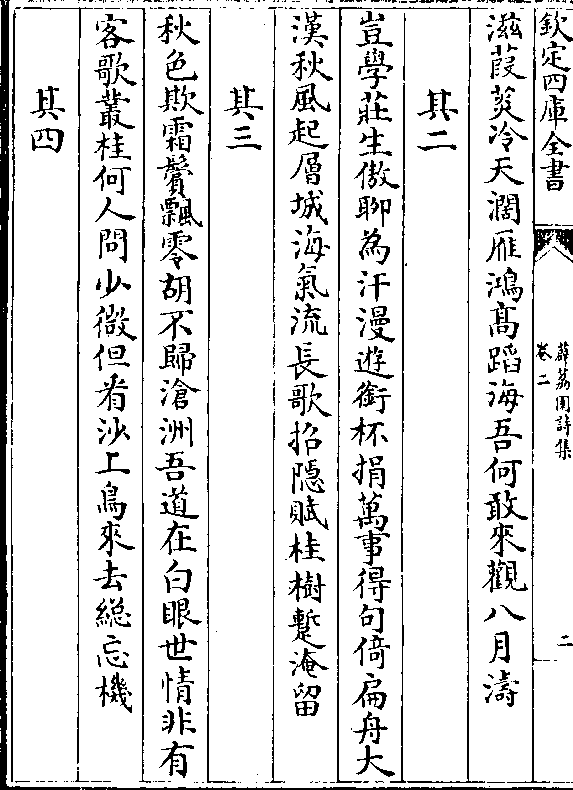 欽定四庫全書
薜荔園詩集
卷二
二
滋葭菼冷天濶雁鴻髙蹈海吾何敢來觀八月濤
其二
豈學莊生傲聊為汗漫遊銜杯捐萬事得句倚扁舟大
漢秋風起層城海氣流長歌招隠賦桂樹蹔淹留
其三
秋色欺霜鬢飄零胡不歸滄洲吾道在白眼世情非有
客歌叢桂何人問少微但看沙上鳥來去總忘機
其四